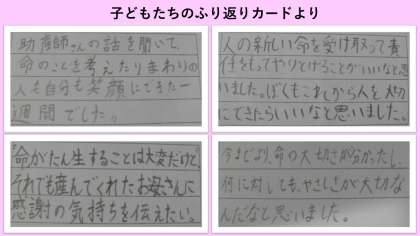 子どもたちのふり返りカードより
助産師さんの話を聞いて、
命のことを考えたりまわりの
人も自分も笑顔にできた一
週間でした。
人の新しい命を受け取って責
任をもってやりとげることがいいなと思
いました。ぼくもこれから人を大切
にできたらいいなと思いました。
命がたん生することは大変だけど、
それでも産んでくれたお母さんに
感謝の気持ちを伝えたい。
今までより、命の大切さが分かったし、
何に対しても、やさしさが大切な
んだなと思いました。